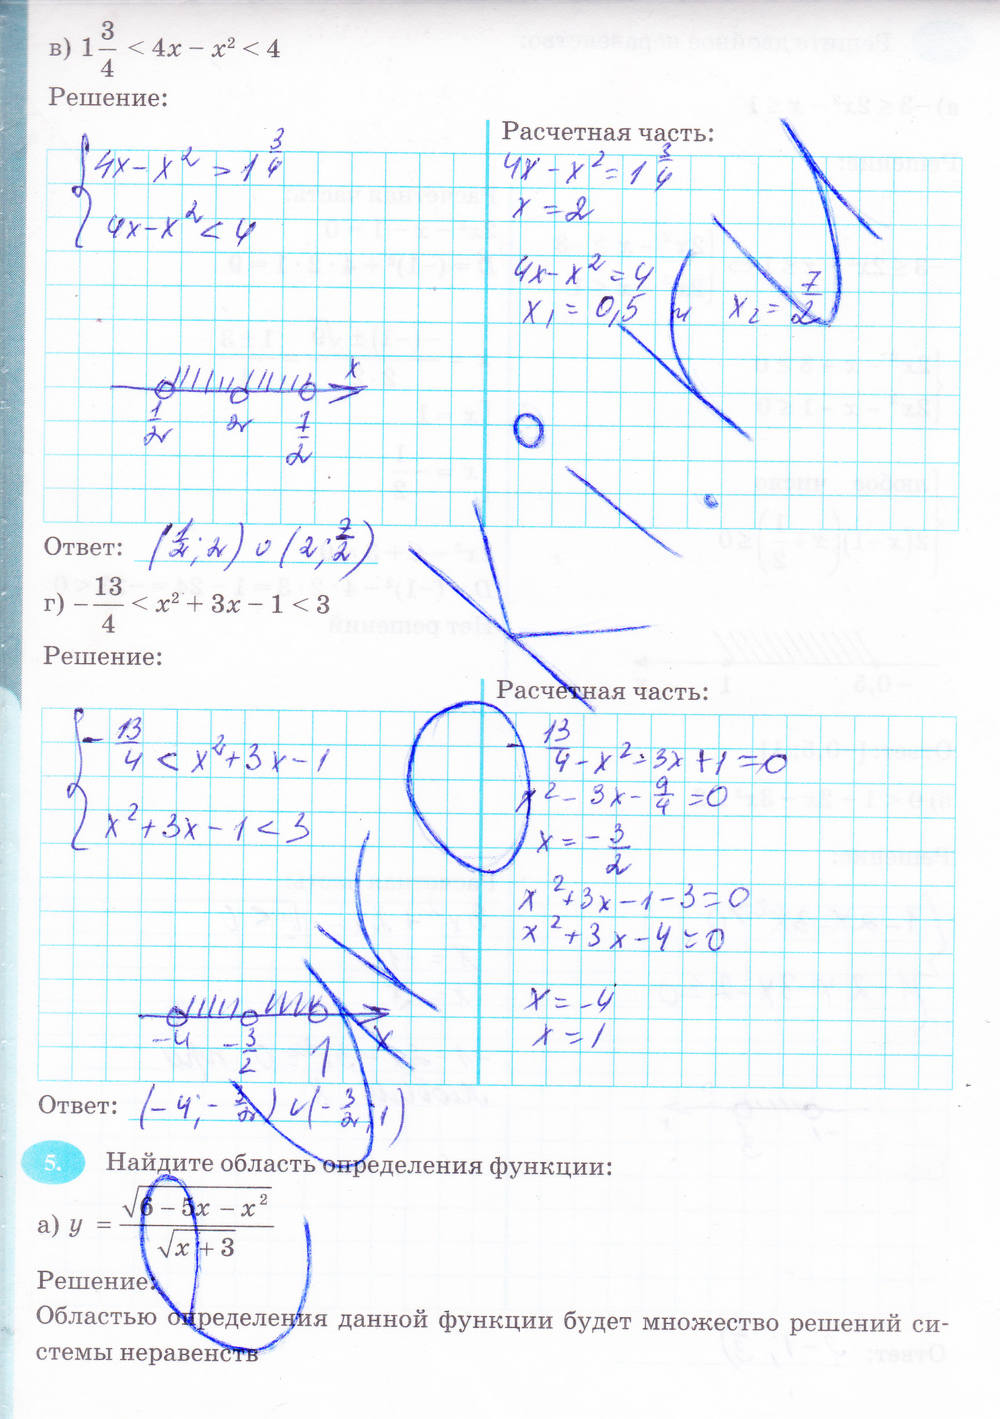 в) 1 3/4 < 4x − x² < 4
Решение:
Расчетная часть:
4x − x² > 1 3/4
4x − x² < 4
4x − x² = 1 3/4
x = 2
4x − x² = 4
x₁ = 0,5 и x₂ = 7/2
x
1/2 2 7/2
Ответ: (1/2; 2) ∪ (2; 7/2)
г) −13/4 < x² + 3x − 1 < 3
Решение:
Расчетная часть:
−13/4 < x² + 3x − 1
x² + 3x − 1 < 3
−13/4 − x² − 3x + 1 = 0
x² − 3x − 9/4 = 0
x = −3/2
x² + 3x − 1 − 3 = 0
x² + 3x − 4 = 0
x = −4
x = 1
−4 −3/2 1 x
Ответ: (−4; −3/2) ∪ (−3/2; 1)
5. Найдите область определения функции:
а) y = √(6 − 5x − x²) / √(x + 3)
Решение:
Областью определения данной функции будет множество решений си-
стемы неравенств